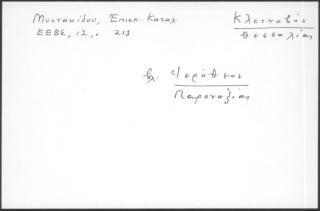 Μυστακίδου, Ἐπισκ. Καταλ.
ΕΕΒΣ, 12, σ. 213
Κλεινοβός
Θεσσαλίας
βλ. Ἱερόθεος
Παροναξίας